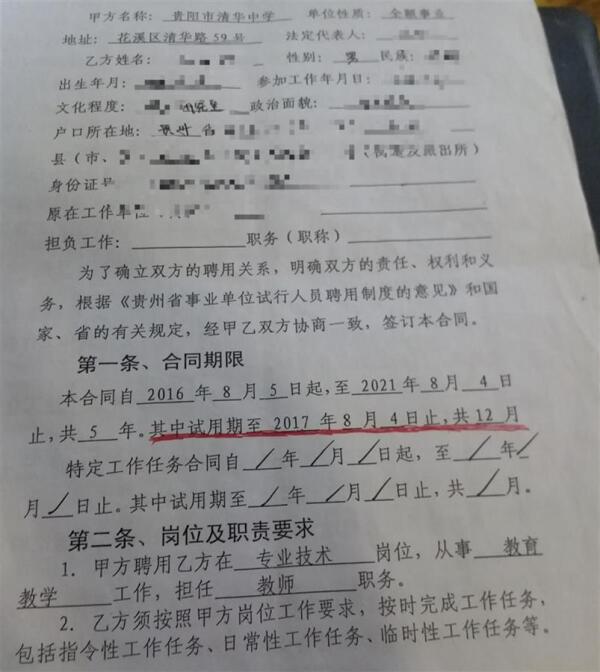 甲方名称: 贵阳市清华中学 单位性质: 全额事业
地址: 花溪区清华路59号 法定代表人:
乙方姓名: 性别: 男 民族:
出生年月: 参加工作年月日:
文化程度: 研究生 政治面貌:
户口所在地: 省
县(市、 派出所)
身份证号
原在工作单位
担负工作: 职务(职称)
为了确立双方的聘用关系,明确双方的责任、权利和义
务,根据《贵州省事业单位试行人员聘用制度的意见》和国
家、省的有关规定,经甲乙双方协商一致,签订本合同。
第一条、合同期限
本合同自 2016 年 8 月 5 日起,至 2021 年 8 月 4 日
止,共 5 年。其中试用期至 2017 年 8 月 4 日止,共 12 月
特定工作任务合同自 / 年 / 月 / 日起,至 / 年 /
月 / 日止。其中试用期至 / 年 / 月 / 日止,共 / 月。
第二条、岗位及职责要求
1. 甲方聘用乙方在 专业技术 岗位,从事 教育
教学 工作,担任 教师 职务。
2. 乙方须按照甲方岗位工作要求,按时完成工作任务,
包括指令性工作任务、日常性工作任务、临时性工作任务等。